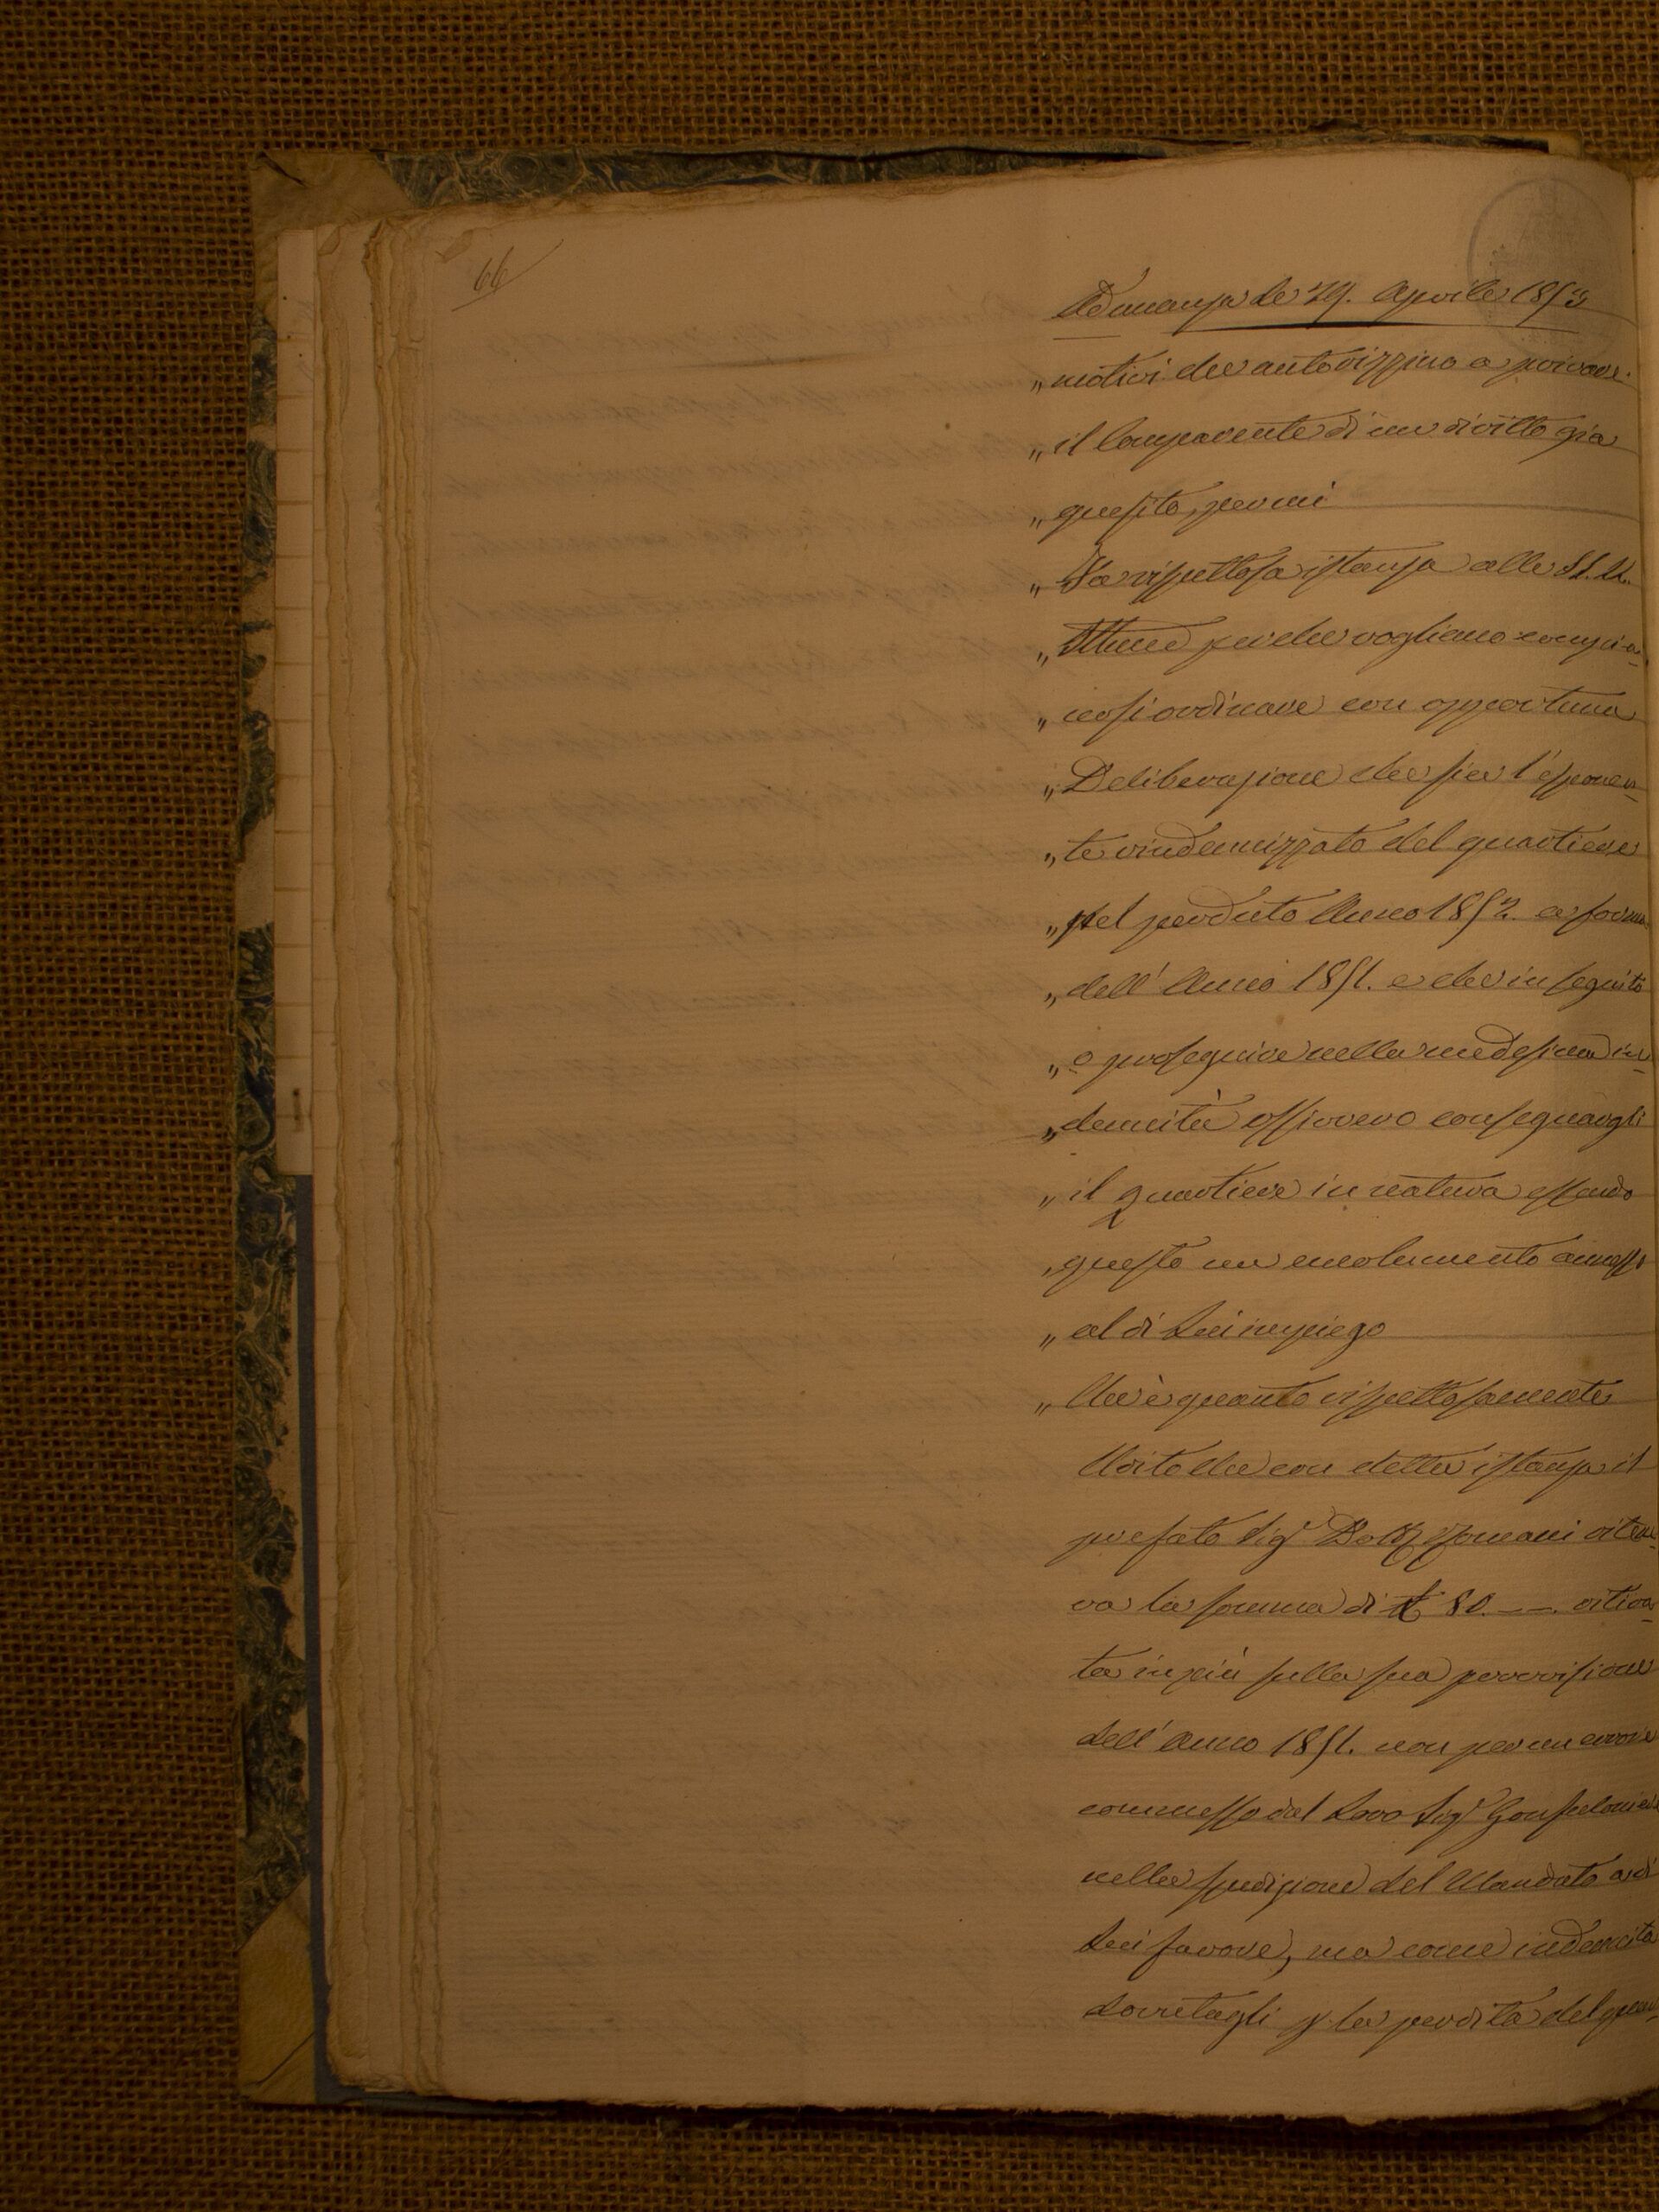 66
Adunanza de 29. Aprile 1853
„ motivi che autorizzino a privare
„ il Comparente di un diritto già
„ quesito, perciò
„ Fa rispettosa istanza alle SS. LL.
„ Illme perche vogliano compia-
„ cersi ordinare con opportuna
„ Deliberazione che sia l'esponen-
„ te rindennizzato del quartiere
„ pel perduto Anno 1852. a forma
„ dell' Anno 1851. e che in seguito
„ o proseguire nella medesima in-
„ dennità ossivvero consegnargli
„ il quartiere in natura essendo
„ questo un emolumento annesso
„ al di Lui impiego
„ Che è quanto rispettosamente
Udito che con detta istanza il
prefato Sig.r Dott. Romani rite-
va la somma di £ 80. —. ritira-
ta in più sulla sua provvisione
dell' Anno 1851. non per un errore
commesso dal Loro Sig.r Gonfaloniere
nella spedizione del Mandato a di
Lui favore, ma come indennità
dovutagli p. la perdita del quar-